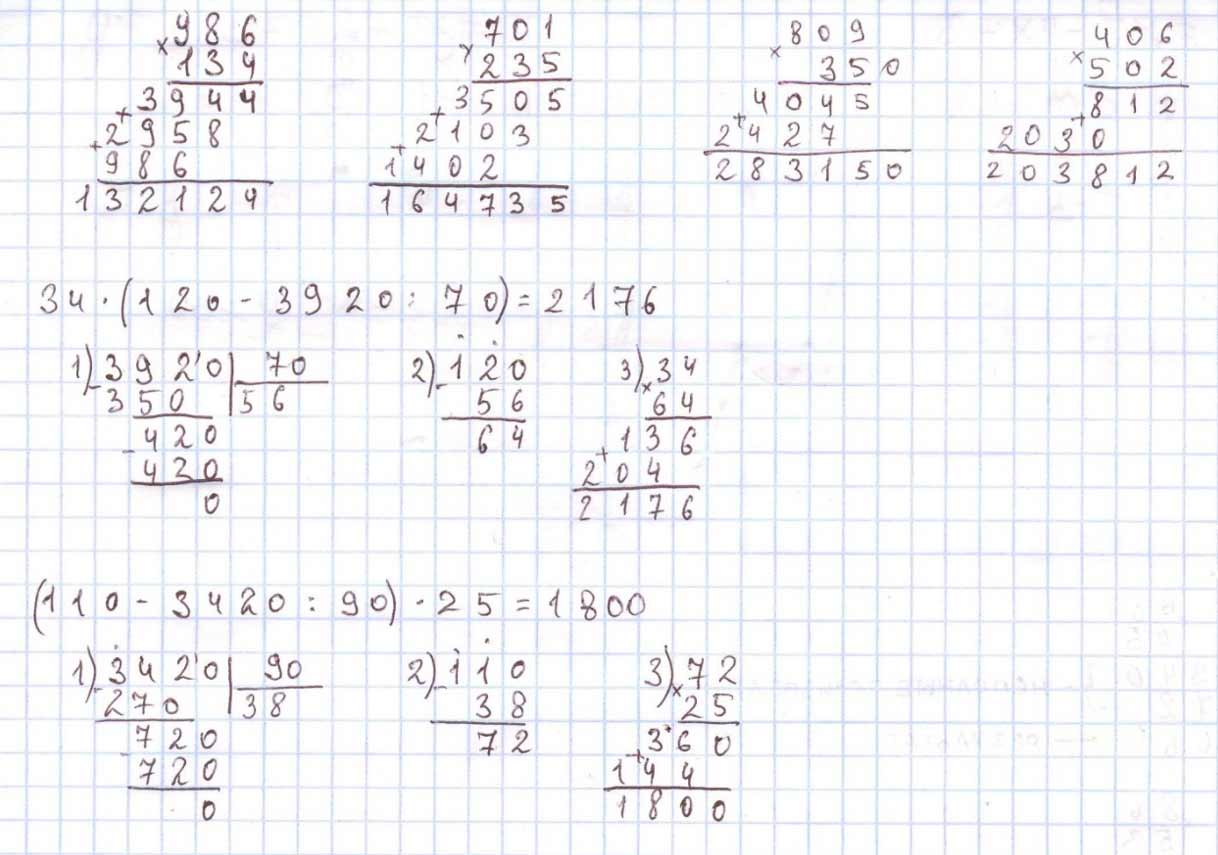 986 701 809 406
× 134 × 235 × 350 × 502
3944 3505 4045 812
+ 2958 + 2103 + 2427 + 2030
+ 986 + 1402 283150 203812
132124 164735
34 · (120 - 3920 : 70) = 2176
1) 3920 | 70 2) 120 3) 34
- 350 | 56 - 56 × 64
- 420 64 136
420 + 204
0 2176
(110 - 3420 : 90) · 25 = 1800
1) 3420 | 90 2) 110 3) 72
- 270 | 38 - 38 × 25
- 720 72 360
720 + 144
0 1800